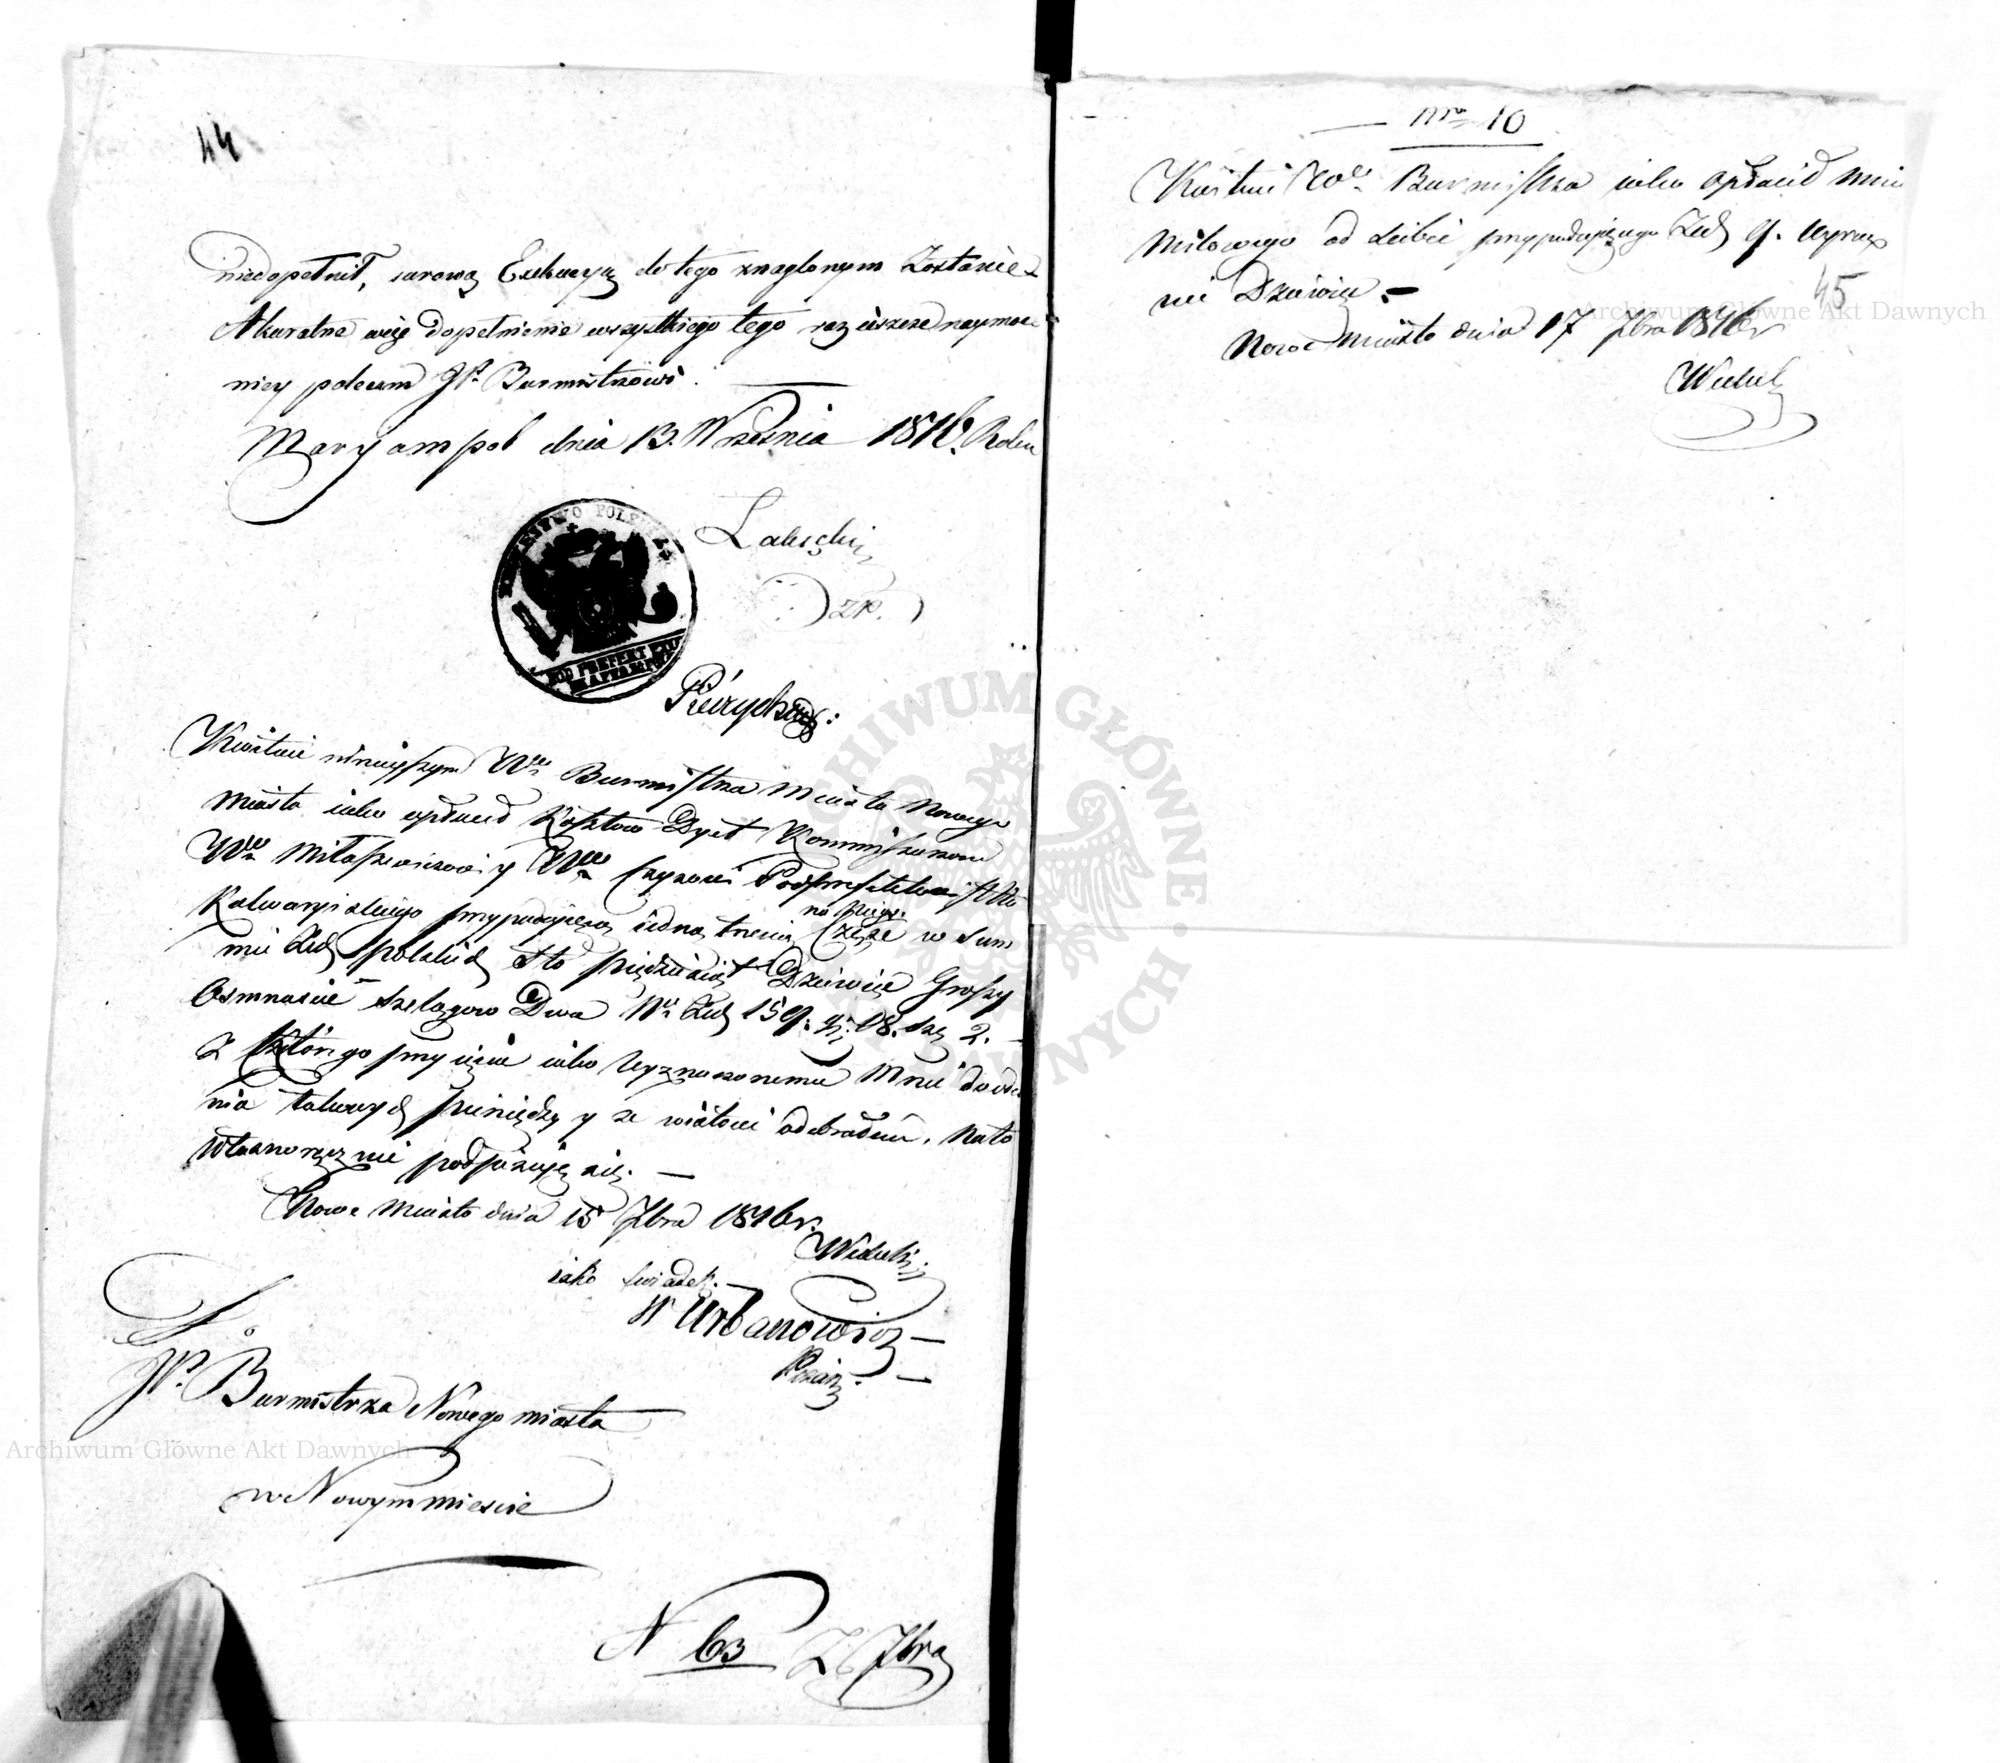 44
niedopełnił, surową Exekucyą do tego znaglonym Zostanie
Akuratne więc dopełnienie wszystkiego tego raz ieszcze naymoc
niey polecam JP. Burmistrzowi.
Maryampol dnia 13. Września 1816. Roku
KRÓLESTWO POLSKIE
POD PREFEKT
zp.
Kwituie ninieyszym Wo Burmistrza Miasta Nowego
Miasta iako opłacił Kosztow Dyet Kommissarzom
Kalwaryiskiego przypadaiącą iedną trzecią Część w Sum
mie Zł polskich Sto pięćdziesiąt Dziewięć Groszy
Osmnaście Szelągow Dwa Nro Zł 159. gr. 18. sze 2.
Z którego przyięcia iako wyznaczonemu Mnie do
nia takowych pieniędzy y ze wistoci odebrałem, na to
własnoręcznie podpisuię się. —
Nowe Miasto dnia 15 7bra 1816 r.
iako swiadek. —
W Urbanowicz —
Pisarz. —
Do
JP. Burmistrza Nowego miasta
w Nowym miescie
N 63 7bra
Nro 10
Kwituie Wo Burmistrza iako opłacił mnie
Milowego od przypadaiącego Zł 9. wyraz
nie Dziewięć. —
45
Nowe Miasto dnia 17 7bra 1816 r
Archiwum Główne Akt Dawnych
Archiwum Główne Akt Dawnych
ARCHIWUM GŁÓWNE AKT DAWNYCH